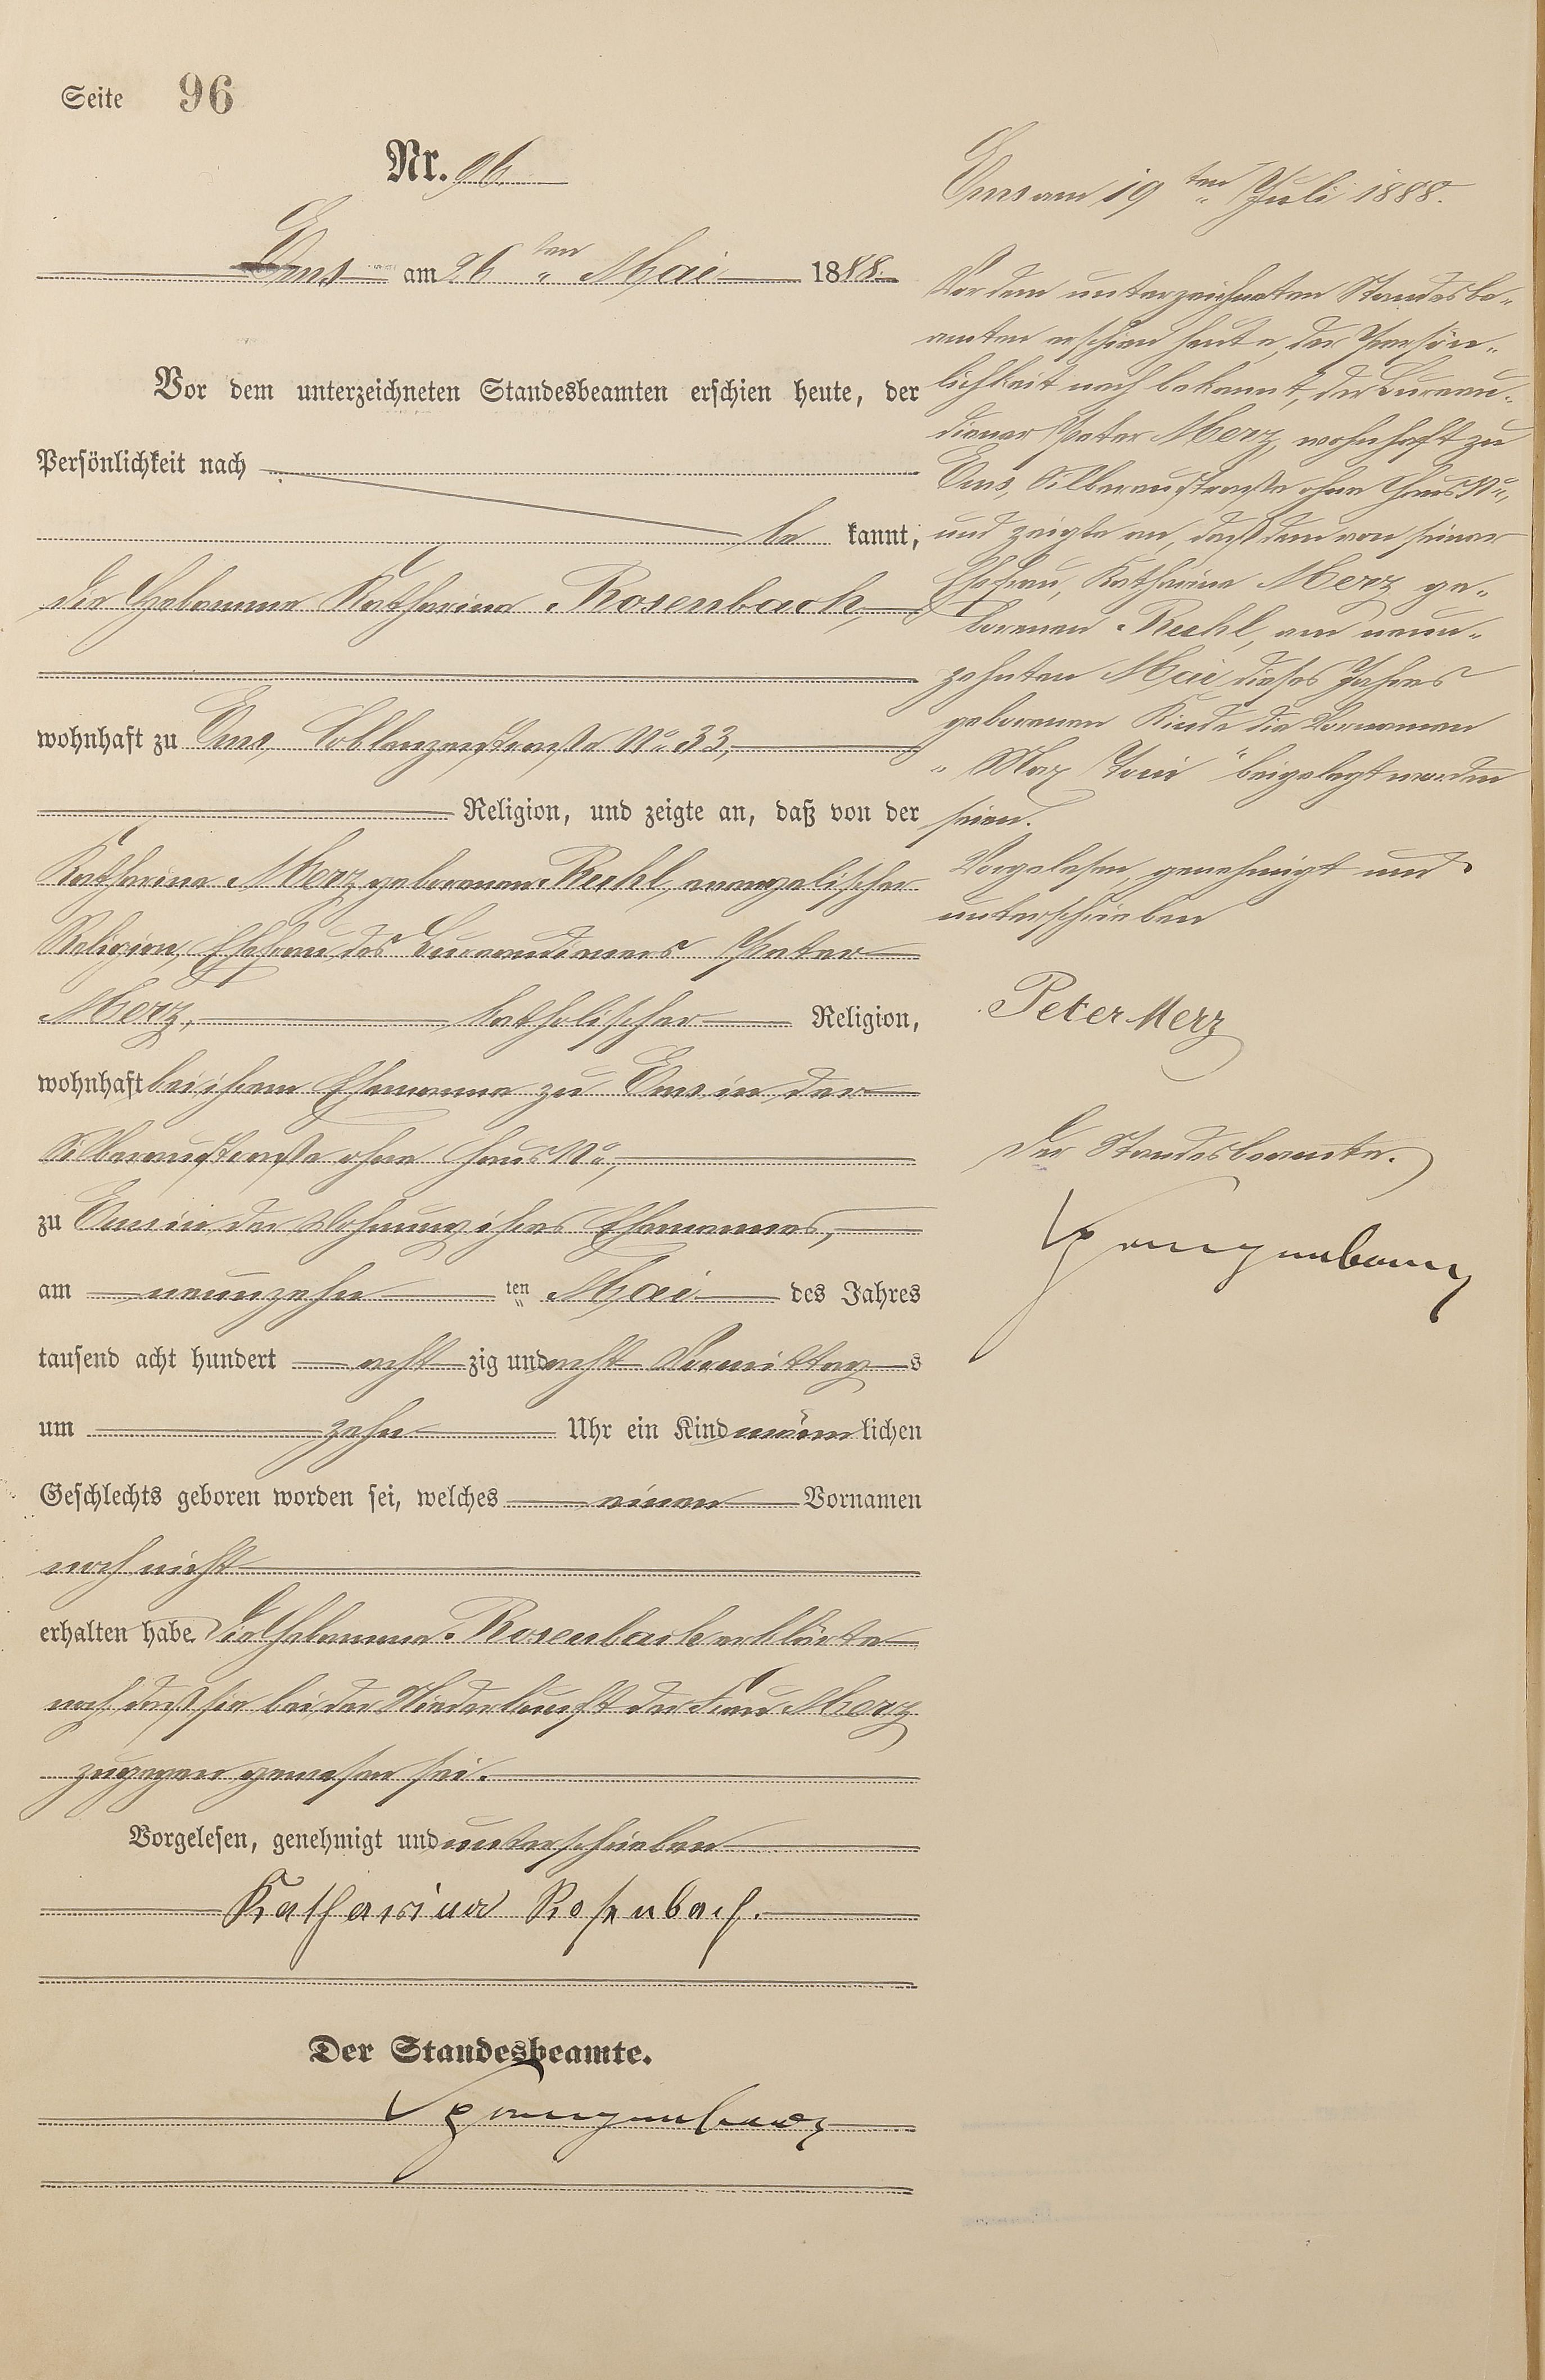 Seite 96
Nr. 96.
Ems am 26ten Mai 1888.
Vor dem unterzeichneten Standesbeamten erschien heute, der
Persönlichkeit nach
be kannt,
die Hebamme Katharina Rosenbach,
wohnhaft zu Ems, Coblenzerstraße No 33,
Religion, und zeigte an, daß von der
Katharina Merz geborenen Ruhl, evangelischer
Religion, Ehefrau des Bureaudieners Peter
Merz, katholischer Religion,
wohnhaft bei ihrem Ehemanne zu Ems in der
Silberaustraße ohne Haus No,
zu Ems in der Wohnung ihres Ehemannes,
am neunzehn ten Mai des Jahres
tausend acht hundert acht zig und acht Vormittag s
um zehn Uhr ein Kind männ lichen
Geschlechts geboren worden sei, welches einen Vornamen
noch nicht
erhalten habe. Die Hebamme Rosenbach erklärte
noch daß sie bei der Niederkunft der Frau Merz
zugegen gewesen sei.
Vorgelesen, genehmigt und unterschrieben
Katharina Rosenbach.
Der Standesbeamte.
Ems am 19ten Juli 1888.
Vor dem unterzeichneten Standesbe-
amten erschien heute, der Persön-
lichkeit nach bekannt, der Bureau-
diener Peter Merz, wohnhaft zu
Ems, Silberaustraße ohne Haus No,
und zeigte an, daß dem von seiner
Ehefrau, Katharina Merz ge-
borenen Ruhl, am neun-
zehnten Mai dieses Jahres
geborenen Kinde die Vornamen
"Max " beigelegt worden
seien.
Vorgelesen, genehmigt und
unterschrieben
Peter Merz
Der Standesbeamte.